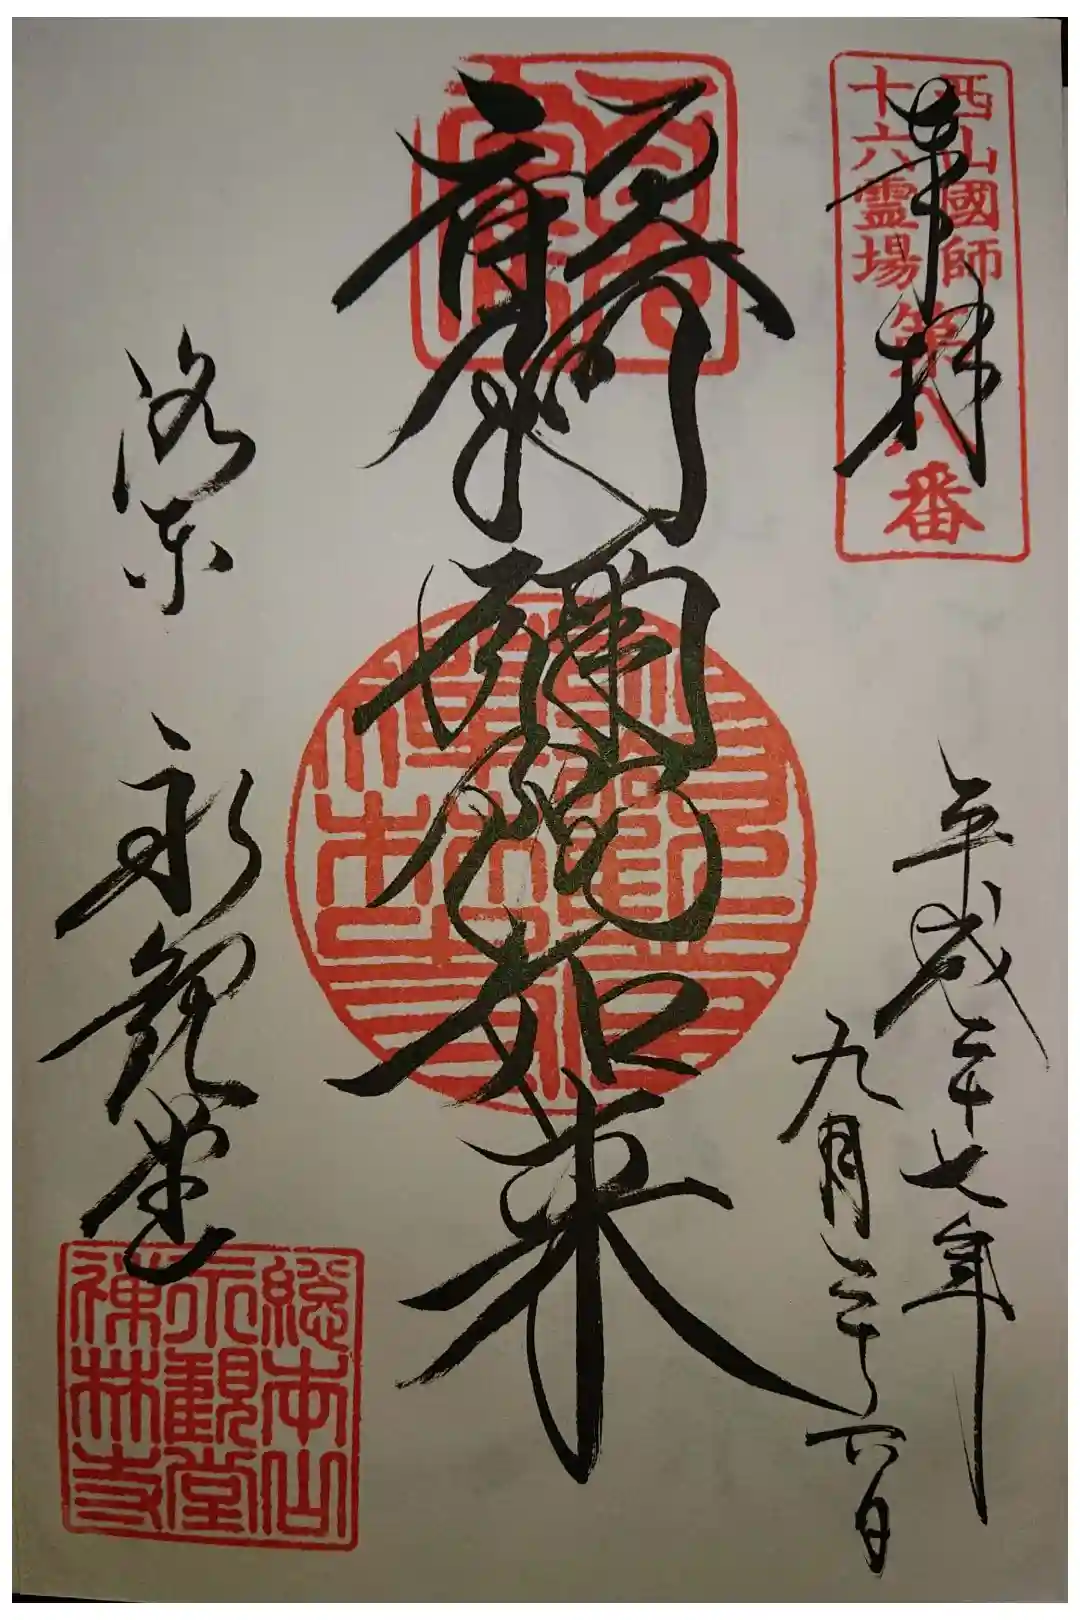 奉拝
西山國師
十六霊場
第八番
平成二十七年
九月二十六日
阿彌陀如来
洛東 永観堂
総本山
永觀堂
禪林寺